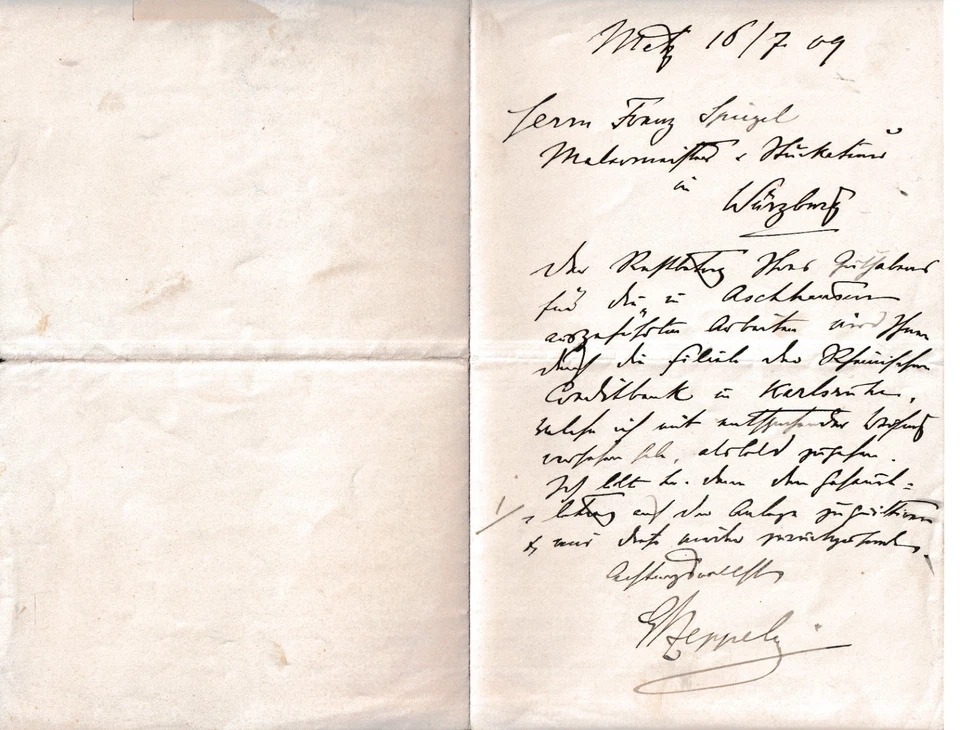 Metz 16/7 09
Herrn Franz Spiegel
Malermeister & Stuckateur
in
Würzburg
Der Restbetrag Ihres Guthabens
für die in Aschhausen
ausgeführten Arbeiten wird Ihnen
durch die Filiale der Rheinischen
Creditbank in Karlsruhe,
welche ich mit entsprechender Weisung
versehen habe, alsbald zugehen.
Ich bitte Sie dann den Gesamt=
betrag auf der Anlage zu quittieren
& mir diese wieder zurückzusenden.
Achtungsvollst
Zeppelin